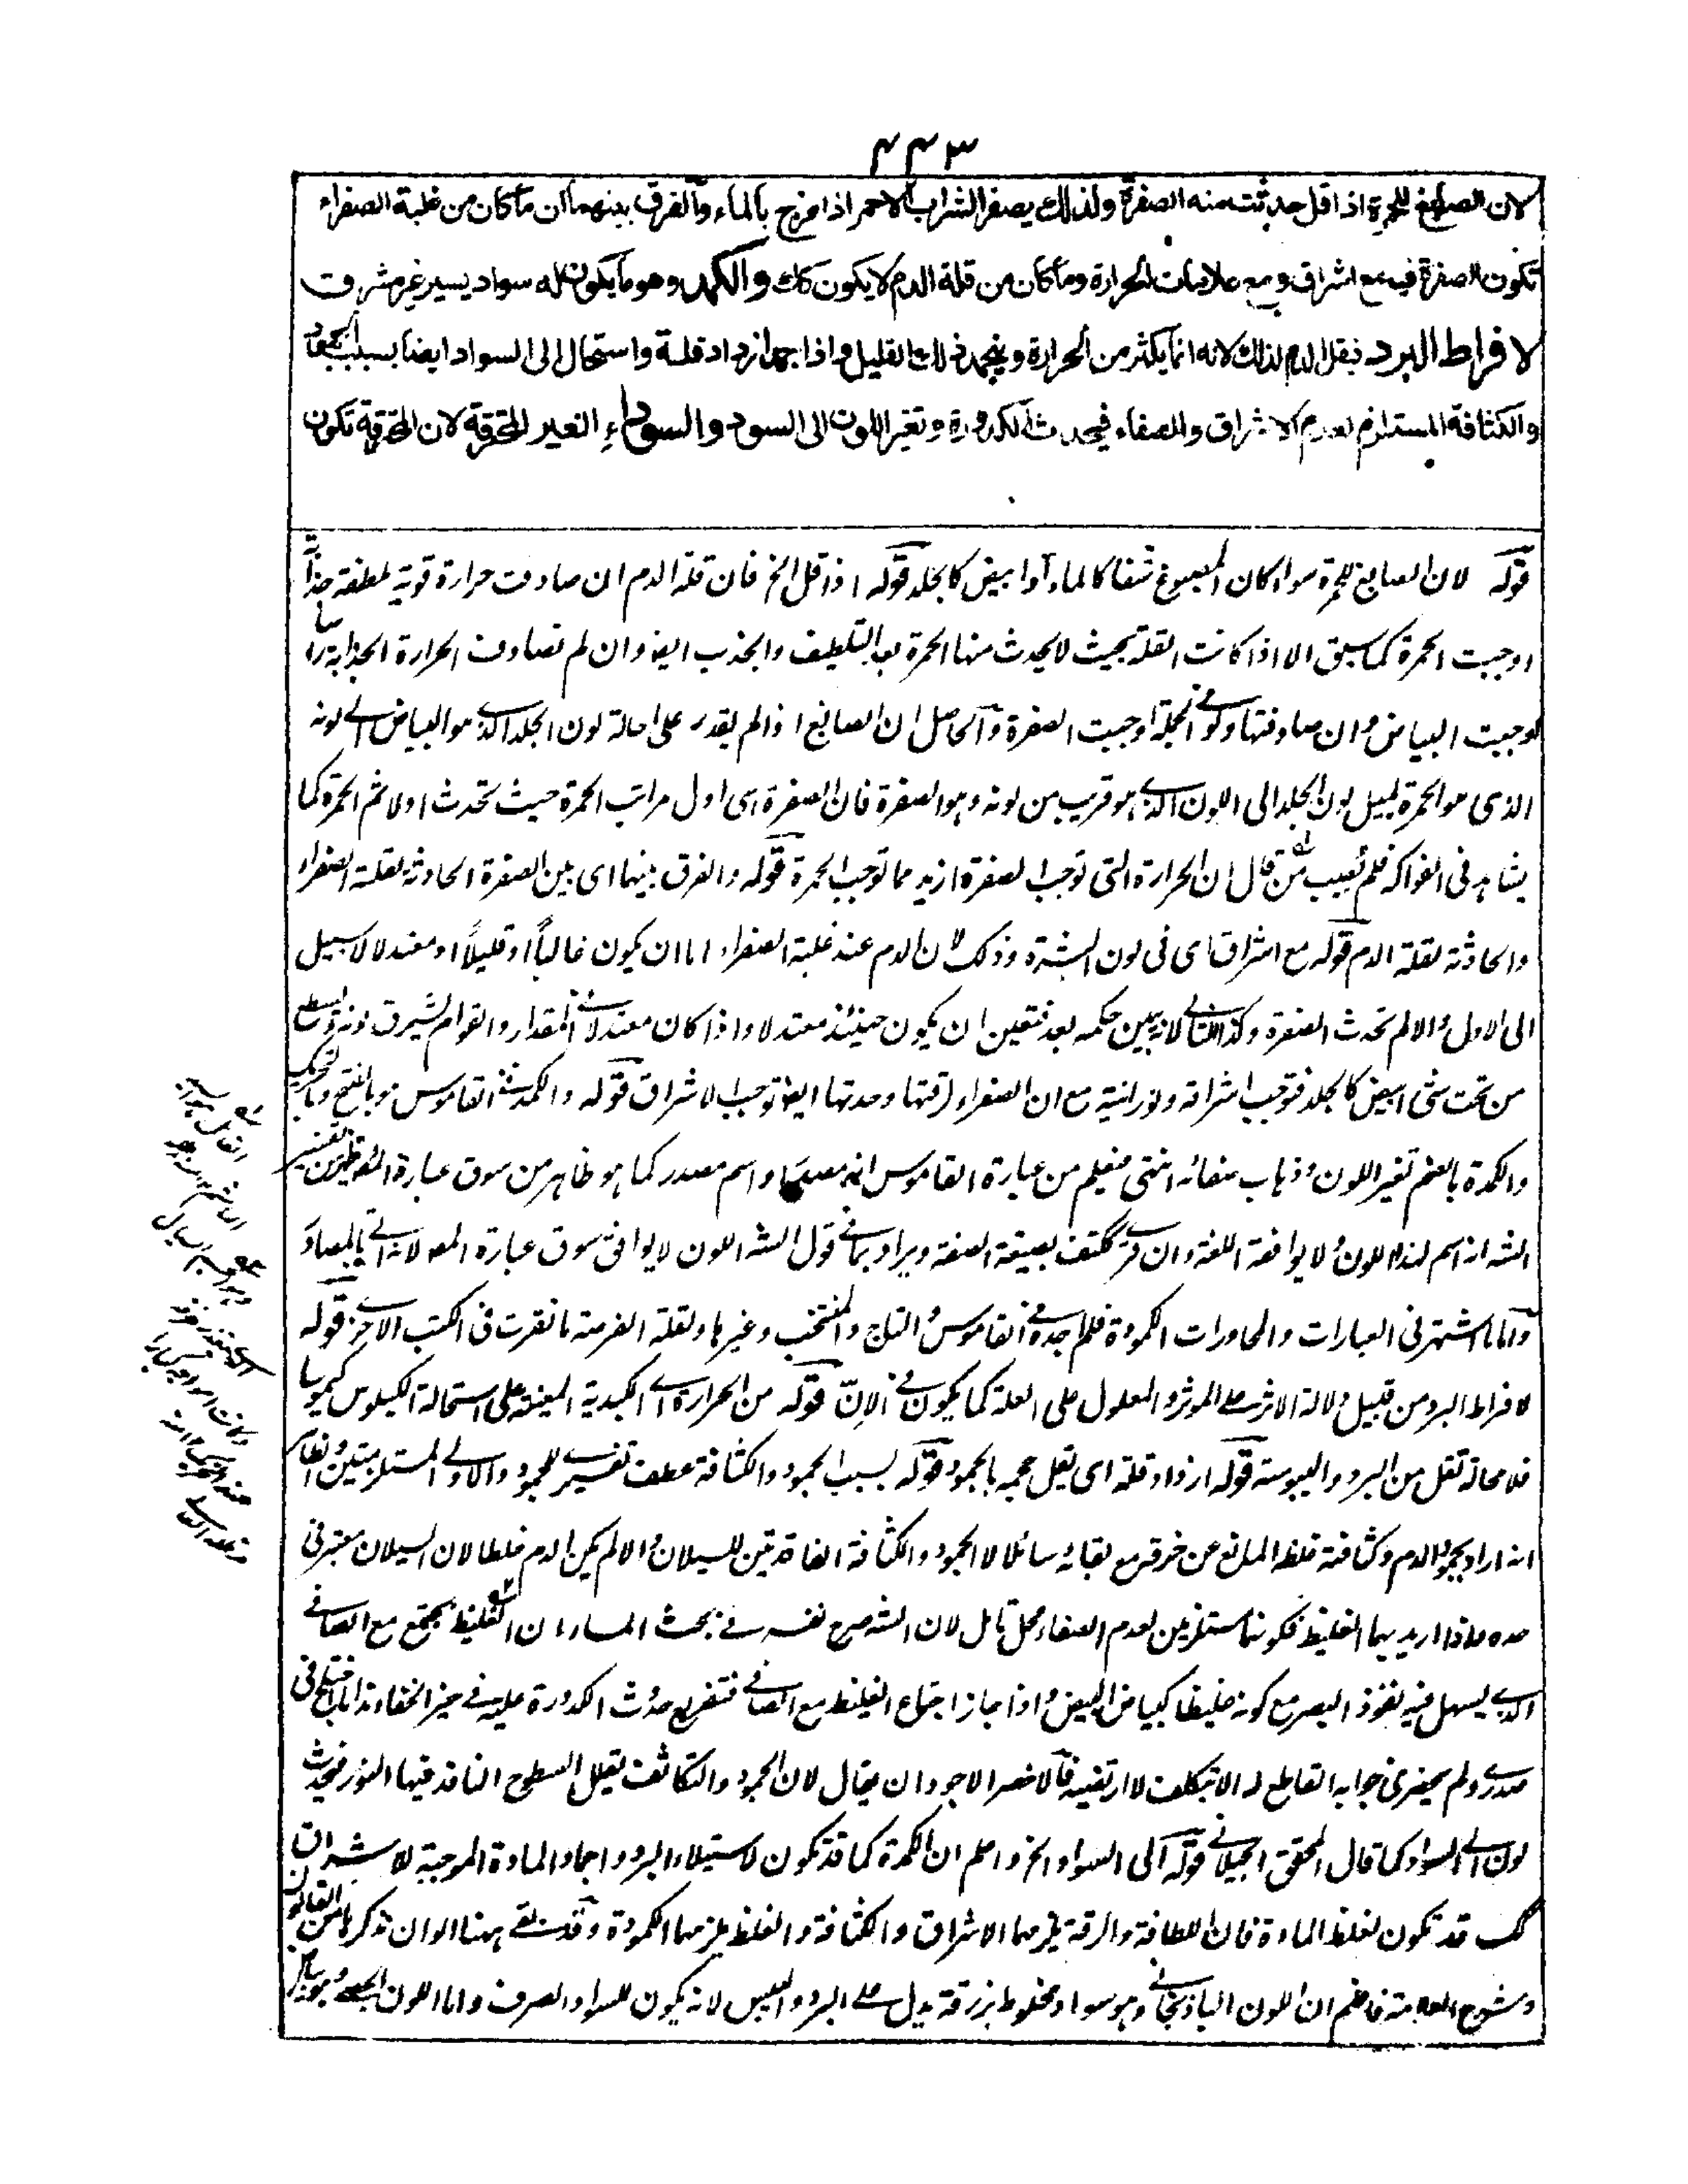 ۴۴۳
لان الصابغ للحمرة اذا قل حدثت منه الصفرة ولذلك يصفر الشراب الاحمر اذا مزج بالماء والفرق بينهما ان ما كان من غلبة الصفراء
تكون الصفرة فيه مع اشراق ومع علامات الحرارة وما كان من قلة الدم لا يكون كك والكمد وهو ما يكون له سواد يسير غير مشرق
لافراط البرد فيقل الدم لذلك لانه انما يكثر من الحرارة وينجمد ذلك القليل واذا جمد ازداد قلة واستحال الى السواد ايضا بسبب الجمود
والكثافة المستلزم لعدم الاشراق والصفاء فيحدث الكدورة وتغير اللون الى السود والسوداء الغير المحترقة لان المحترقة تكون
قوله لان الصابغ للحمرة سواء كان المصبوغ شفا كالماء او ابيض كالجلد قوله اذا قل الخ فان قلة الدم ان صادفت حرارة قوية ملطفة جذابة
اوجبت الحمرة كما سبق الا اذا كانت القلة بحيث لا يحدث منها الحمرة بعد التلطيف والجذب ايضا وان لم تصادف الحرارة الجذابة راسا
اوجبت البياض وان صادفتها ولو في الجملة اوجبت الصفرة والحاصل ان الصابغ اذا لم يقدر على احالة لون الجلد الذي هو البياض الى لونه
الذى هو الحمرة يميل لون الجلد الى اللون الذي هو قريب من لونه وهو الصفرة فان الصفرة اى اول مراتب الحمرة حيث تحدث اولا ثم الحمرة كما
يشاهد فى الفواكه فلم يصب من قال ان الحرارة التى توجب الصفرة ازيد مما توجب الحمرة قوله والفرق بينهما اى بين الصفرة الحادثة لغلبة الصفراء
والحادثة لقلة الدم قوله مع اشراق اى فى لون البشرة وذلك لان الدم عند غلبة الصفراء اما ان يكون غالباً او قليلاً او معتدلا لا سبيل
الى الاول والا لم تحدث الصفرة وكذا الثاني لانه يبين حكمه بعد فتعين ان يكون حينئذ معتدلا واذا كان معتدلا في المقدار والقوام يشرق لونه
من تحت شئ ابيض كالجلد فتوجب اشراقه ونورانيته مع ان الصفراء لرقتها وحدتها ايضا توجب الاشراق قوله والكمد في القاموس هو بالفتح وبالتحريك
والكمدة بالضم تغير اللون وذهاب صفائه انتهى فيعلم من عبارة القاموس انه مصدر او اسم مصدر كما هو ظاهر من سوق عبارة
الشه انه اسم لذلك اللون ولا يوافقه اللغة وان قرئ ككتف بصيغة الصفة ويراد بما في قول الشه اللون لا يوافق سوق عبارة المص لانه اتى بالمصادر
واما ما اشتهر فى العبارات والمحاورات الكمودة فلم اجده في القاموس والتاج والمنتخب وغيرها ولقلة الفرصة ما نقرت فى الكتب الاخر قوله
لافراط البرد من قبيل دلالة الاثر على الموثر والمعلول على العلة كما يكون في الإنّ قوله من الحرارة اے الكبدية المعينة على استحالة الكيلوس كيموسا
فلا محالة تقل من البرد واليبوسة قوله ازداد قلة اى يقل حجمه بالجمود قوله بسبب الجمود والكثافة عطف تفسيري للجمود والاولى المستلزمتين
انه اراد بجمود الدم وكثافته غلظه المانع عن خرقه مع بقائه سائلا لا الجمود والكثافة الفاقدتين للسيلان والا لم يكن الدم خلطا لان السيلان معتبر فى
حده واذا اريد بهما الغليظ فكونهما مستلزمين لعدم الصفاء محل تامل لان الشه صرح نفسه في بحث الماء ان الغليظ يجتمع مع الصافي
الذي يسهل فيه نفوذ البصر مع كونه غليظا كبياض البيض واذا جاز اجتماع الغليظ مع الصافي فتفريع حدوث الكدورة عليه في حيز الخفاء هذا ما اختلج فى
صدري ولم يحضرنى جوابه القاطع له الا بتكلف لا ارتضيه فالاخصر الاجود ان يقال لان الجمود والتكاثف يقلل السطوح النافذ فيها النور فيحدث
لون الى السواد كما قال المحقق الجيلاني قوله الى السواد الخ واعلم ان الكمدة كما قد تكون لاستيلاء البرد واجماد المادة الموجبة للاشراق
كك قد تكون لغلظ المادة فان اللطافة والرقة يلزمهما الاشراق والكثافة والغلظ يلزمهما الكمودة وقد بقى ههنا الوان نذكرها من القانون
وشرح العلامة فاعلم ان اللون الباذنجاني وهو سواد مخلوط بزرقة يدل على البرد واليبس لانه يكون للسواد الصرف واما اللون